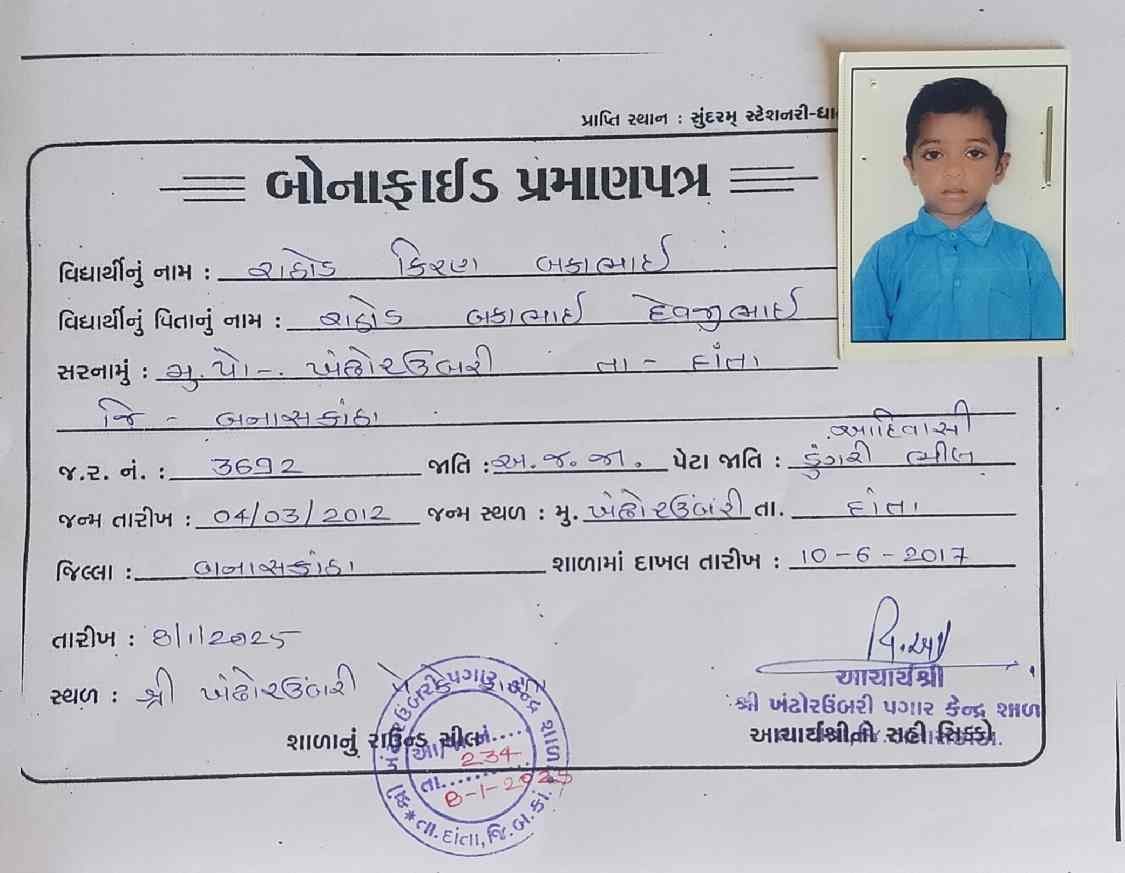 પ્રાપ્તિ સ્થાન : સુંદરમ્ સ્ટેશનરી-ધા
બોનાફાઈડ પ્રમાણપત્ર
વિદ્યાર્થીનું નામ : રાઠોડ કિરણ બકાભાઈ
વિદ્યાર્થીનું પિતાનું નામ : રાઠોડ બકાભાઈ દેવજીભાઈ
સરનામું : મુ.પો-. ખંઢોરઉંબરી તા - દાંતા
જિ - બનાસકાંઠા
જ.ર. નં. : 3692 જાતિ : અ.જ.જા. પેટા જાતિ : આદિવાસી ડુંગરી ભીલ
જન્મ તારીખ : 04/03/2012 જન્મ સ્થળ : મુ. ખંઢોરઉંબરી તા. દાંતા
જિલ્લા : બનાસકાંઠા શાળામાં દાખલ તારીખ : 10-6-2017
તારીખ : 8/1/2025
સ્થળ : શ્રી ખંઢોરઉંબરી
આચાર્યશ્રી
શ્રી ખંઢોરઉંબરી પગાર કેન્દ્ર શાળ
શાળાનું રાઉન્ડ સીલ આચાર્યશ્રીની સહી સિક્કો
ખંઢોરઉંબરી પગાર કેન્દ્ર શાળા
234
તા. 8-1-2025
તા. દાંતા, જિ. બ.કાં.